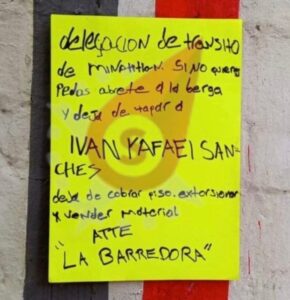 delegacion de transito
de MINATITLAN. SI NO quieres
Pedos abrete a la berga
y deja de tapar a
IVAN YAFAEl SAN-
CHES
deja de cobrar piso. extorsionar
y vender material
ATTE
"LA BARREDORA"